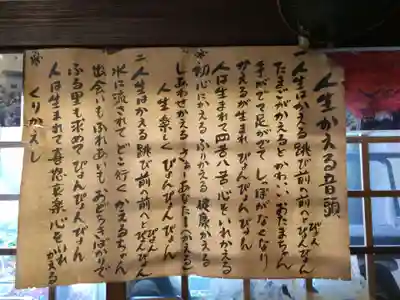 人生かえる音頭
一 人生はかえる 跳び前へ前へとぴょん
たまごがかえるとかわいいおたまちゃん
手がでて足がでて しっぽがなくなり
かえるが生まれ ぴょんぴょんぴょん
人は生まれて四苦八苦 心をいれかえる
※ 初心にかえる ふりかえる 健康かえる
しあわせがえる さぁーあなたも
人生楽しく ぴょんぴょんぴょん
二 人生はかえる 跳び前へ前へとぴょんぴょん
水に流されて どこ行くかえるちゃん
出会いもふれあいも おどろきばかりで
ふる里も求めてぴょんぴょんぴょん
人は生まれて喜怒哀楽 心をいれかえる
※ くりかえし